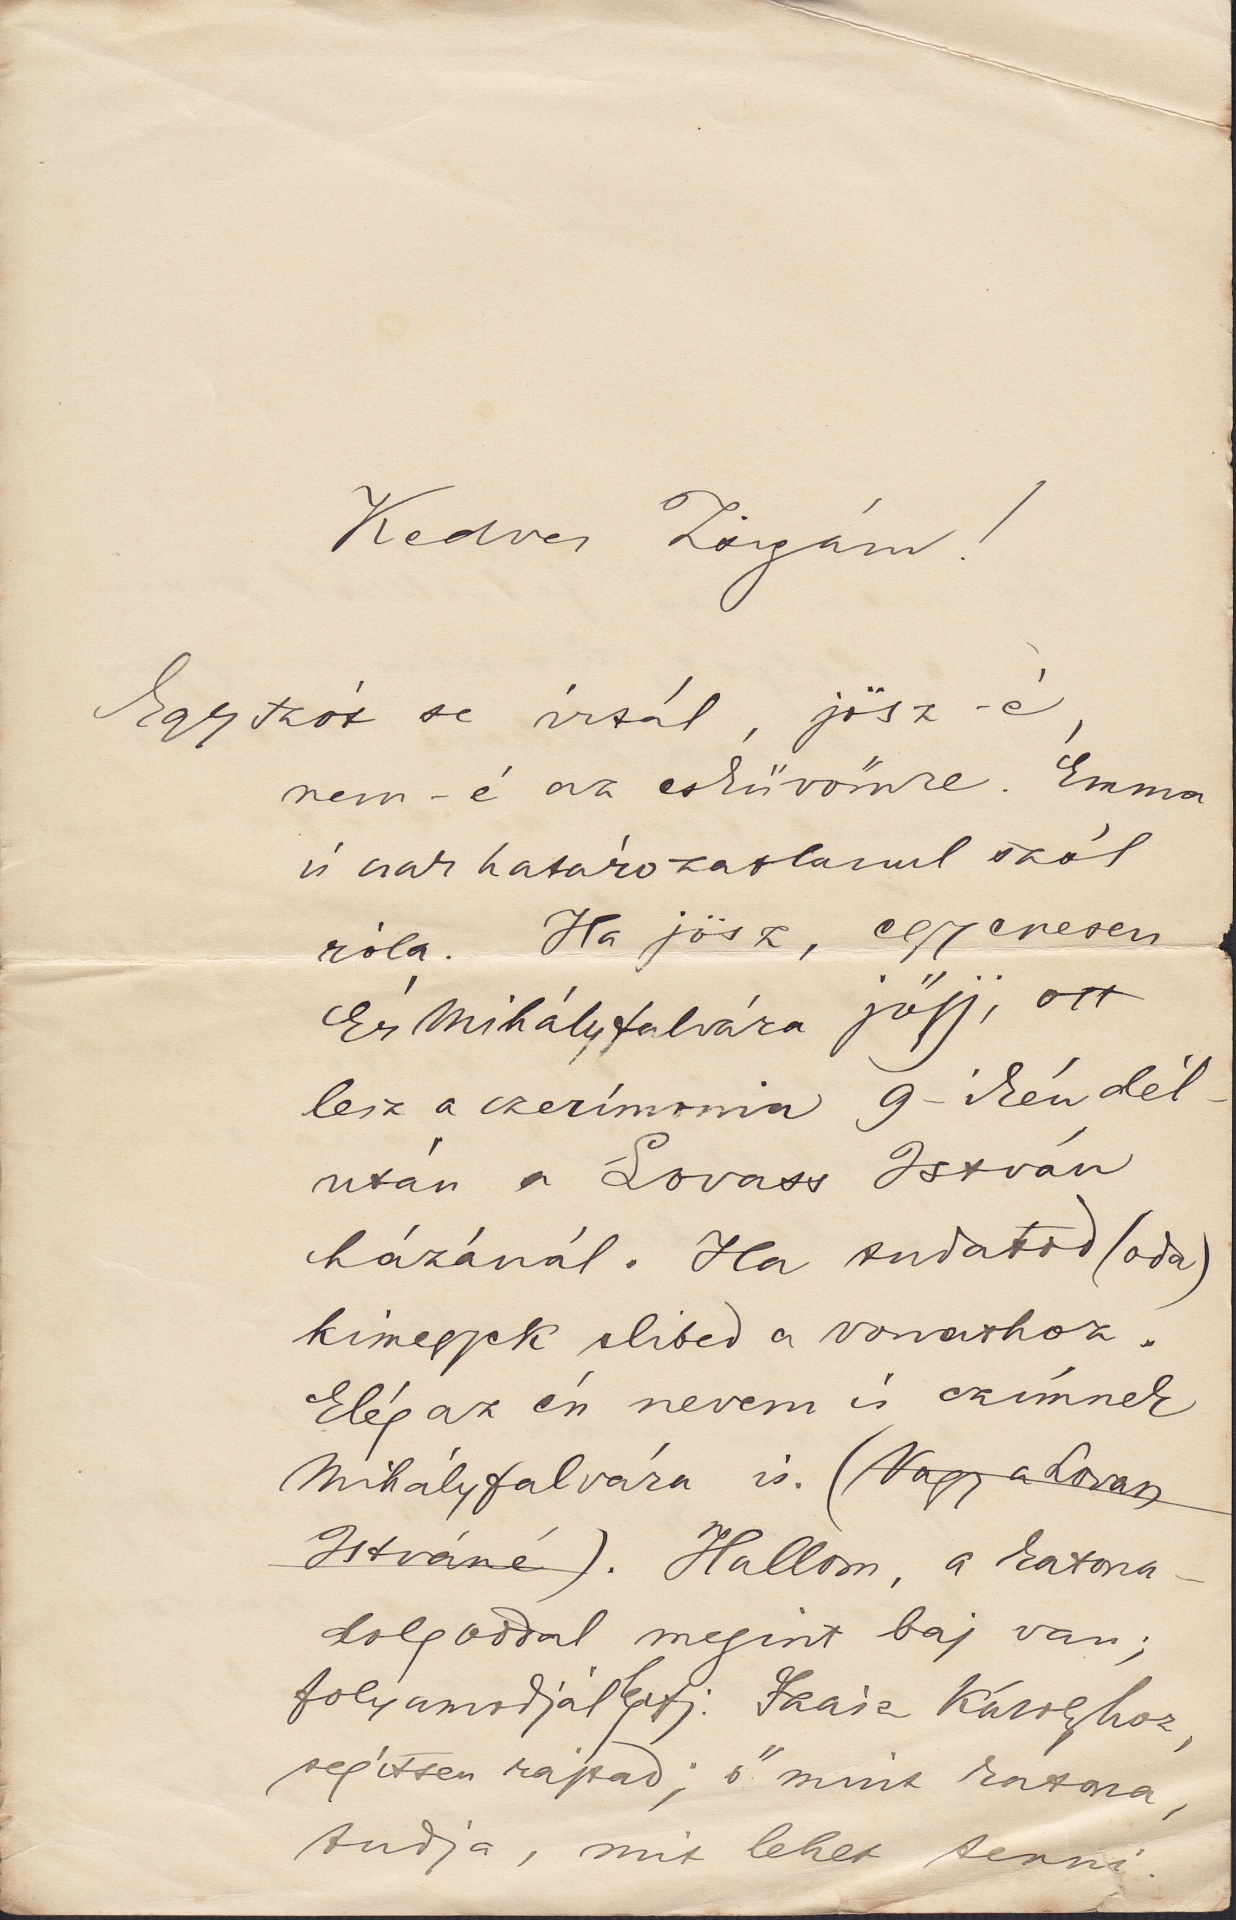 Kedves Zsigám!
Egy szót se írtál, jösz-é,
nem-é az esküvőmre. Emma
is csak határozatlanul szól
róla. Ha jösz, egyenesen
Ér Mihályfalvára jőjj, ott
lesz a czerimonia 9-ikén dél-
után a Lovass István
házánál. Ha tudatod (oda)
kimegyek elibed a vonathoz.
Elég az én nevem is czímnek
Mihályfalvára is. (Vagy a Lovass
Istváné). Hallom, a katona-
dolgoddal megint baj van;
folyamodjál Károlyhoz,
segítsen rajtad; ő mint katona,
tudja, mit lehet tenni.